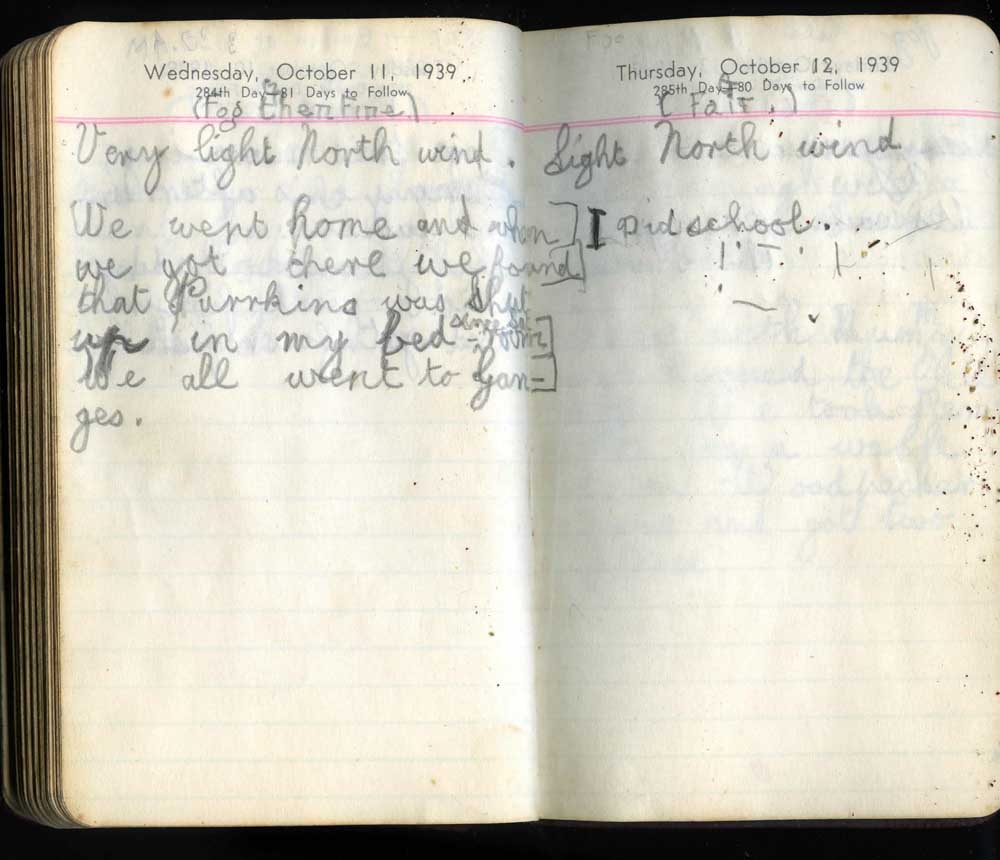 Wednesday, October 11, 1939
284th Day—81 Days to Follow
(Fog then Fine.)
Very light North wind.
We went home and when
we got there we found
that Purrkins was shut
up in my bed-room
since
We all went to Gan-
ges.
Thursday, October 12, 1939
285th Day—80 Days to Follow
(Fair.)
Light North wind
I did school.